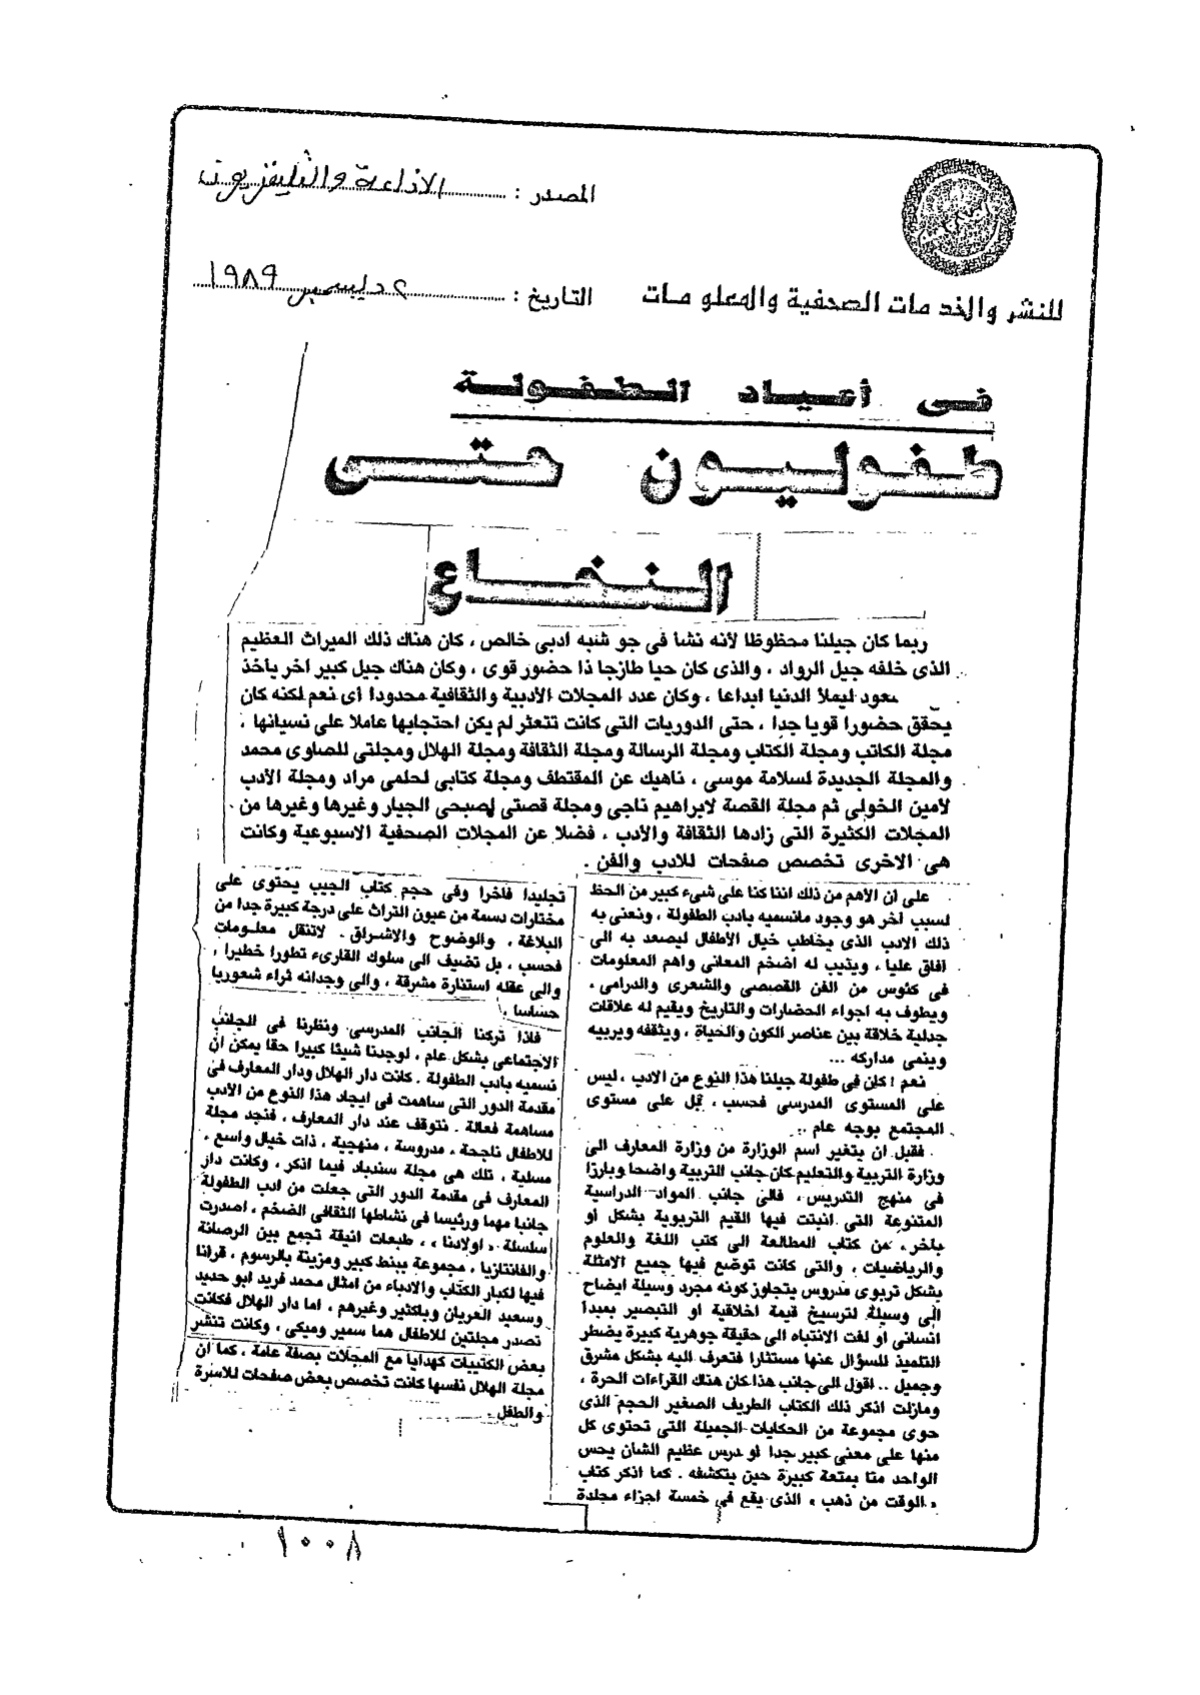 المصدر : الاذاعة والتليفزيون
للنشر والخدمات الصحفية والمعلومات
التاريخ : ٢ ديسمبر ١٩٨٩
فى أعياد الطفولة
طفوليون حتى
النخاع
ربما كان جيلنا محظوظا لأنه نشأ فى جو شبه ادبى خالص ، كان هناك ذلك الميراث العظيم
الذى خلفه جيل الرواد ، والذى كان حيا طازجا ذا حضور قوى ، وكان هناك جيل كبير اخر ياخذ
يعود ليملأ الدنيا ابداعا ، وكان عدد المجلات الأدبية والثقافية محدودا اى نعم لكنه كان
يحقق حضورا قويا جدا ، حتى الدوريات التى كانت تتعثر لم يكن احتجابها عاملا على نسيانها ،
مجلة الكاتب ومجلة الكتاب ومجلة الرسالة ومجلة الثقافة ومجلة الهلال ومجلتى للصاوى محمد
والمجلة الجديدة لسلامة موسى ، ناهيك عن المقتطف ومجلة كتابى لحلمى مراد ومجلة الأدب
لأمين الخولى ثم مجلة القصة لابراهيم ناجى ومجلة قصتى لصبحى الجيار وغيرها وغيرها من
المجلات الكثيرة التى زادها الثقافة والأدب ، فضلا عن المجلات الصحفية الاسبوعية وكانت
هى الاخرى تخصص صفحات للادب والفن .
على ان الأهم من ذلك اننا كنا على شىء كبير من الحظ
لسبب اخر هو وجود مانسميه بادب الطفولة ، ونعنى به
ذلك الادب الذى يخاطب خيال الأطفال ليصعد به الى
افاق عليا ، ويذيب له اضخم المعانى واهم المعلومات
فى كئوس من الفن القصصى والشعرى والدرامى ،
ويطوف به اجواء الحضارات والتاريخ ويقيم له علاقات
جدلية خلاقة بين عناصر الكون والحياة ، ويثقفه ويربيه
وينمى مداركه ...
نعم ! كان فى طفولة جيلنا هذا النوع من الادب ، ليس
على المستوى المدرسى فحسب ، بل على مستوى
المجتمع بوجه عام ..
فقبل ان يتغير اسم الوزارة من وزارة المعارف الى
وزارة التربية والتعليم كان جانب التربية واضحا وبارزا
فى منهج التدريس ، فالى جانب المواد الدراسية
المتنوعة التى انبتت فيها القيم التربوية بشكل او
بآخر ، من كتاب المطالعة الى كتب اللغة والعلوم
والرياضيات ، والتى كانت توضع فيها جميع الامثلة
بشكل تربوى مدروس يتجاوز كونه مجرد وسيلة ايضاح
الى وسيلة لترسيخ قيمة اخلاقية او التبصير بمبدأ
انسانى او لفت الانتباه الى حقيقة جوهرية كبيرة يضطر
التلميذ للسؤال عنها مستثارا فتعرف اليه بشكل مشرق
وجميل .. اقول الى جانب هذا كان هناك القراءات الحرة ،
ومازلت اذكر ذلك الكتاب الطريف الصغير الحجم الذى
حوى مجموعة من الحكايات الجميلة التى تحتوى كل
منها على معنى كبير جدا او درس عظيم الشان يحس
الواحد منا بمتعة كبيرة حين يتكشفه . كما اذكر كتاب
« الوقت من ذهب » الذى يقع فى خمسة اجزاء مجلدة
تجليدا فاخرا وفى حجم كتاب الجيب يحتوى على
مختارات دسمة من عيون التراث على درجة كبيرة جدا من
البلاغة ، والوضوح والاشراق . لاتنقل معلومات
فحسب ، بل تضيف الى سلوك القارىء تطورا خطيرا ،
والى عقله استنارة مشرقة ، والى وجدانه ثراء شعوريا
حساسا .
فاذا تركنا الجانب المدرسى ونظرنا فى الجانب
الاجتماعى بشكل عام ، لوجدنا شيئا كبيرا حقا يمكن ان
نسميه بادب الطفولة . كانت دار الهلال ودار المعارف فى
مقدمة الدور التى ساهمت فى ايجاد هذا النوع من الأدب
مساهمة فعالة . نتوقف عند دار المعارف ، فنجد مجلة
للاطفال ناجحة ، مدروسة ، منهجية ، ذات خيال واسع ،
مسلية ، تلك هى مجلة سندباد فيما اذكر ، وكانت دار
المعارف فى مقدمة الدور التى جعلت من ادب الطفولة
جانبا مهما ورئيسا فى نشاطها الثقافى الضخم ، اصدرت
سلسلة « اولادنا » ، طبعات انيقة تجمع بين الرصانة
والفانتازيا ، مجموعة ببنط كبير ومزينة بالرسوم ، قرانا
فيها لكبار الكتاب والادباء من امثال محمد فريد ابو حديد
وسعيد العريان وباكثير وغيرهم ، اما دار الهلال فكانت
تصدر مجلتين للاطفال هما سمير وميكى ، وكانت تنشر
بعض الكتيبات كهدايا مع المجلات بصفة عامة ، كما ان
مجلة الهلال نفسها كانت تخصص بعض صفحات للاسرة
والطفل .
١٠٠٨